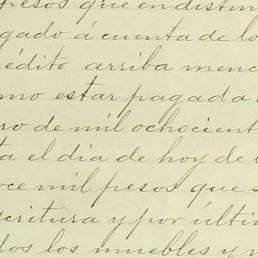 pesos que en distin
gado á cuenta de lo
édito arriba menc
mo estar pagada
ro de mil ochocient
ta el dia de hoy de
oce mil pesos que s
critura y por últim
dos los muebles y